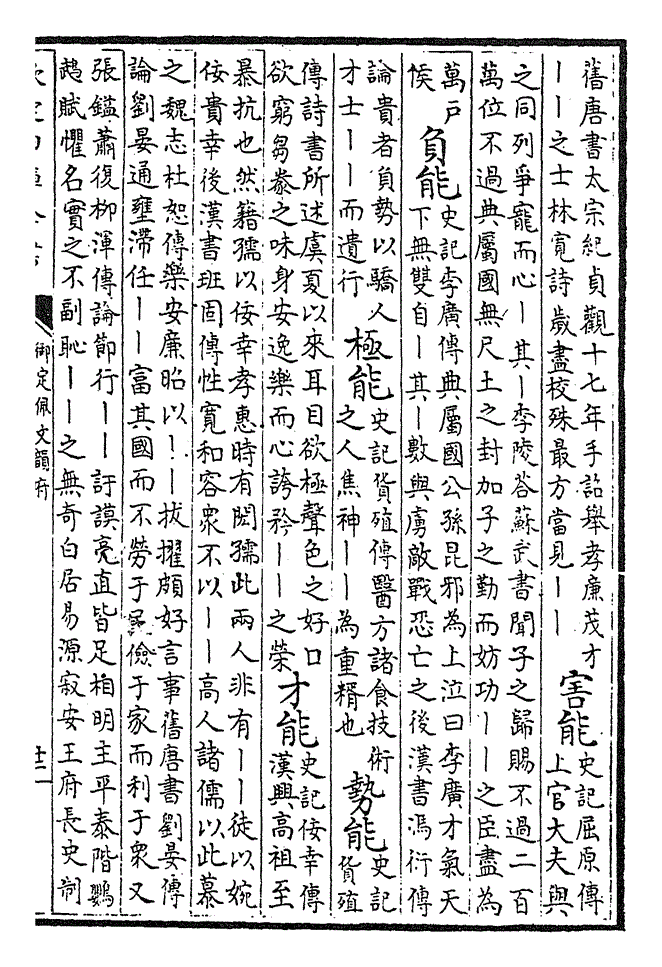 舊唐書太宗紀貞觀十七年手詔舉孝廉茂才
丨丨之士林寬詩歲盡校殊最方當見丨丨
害能
史記屈原傳
上官大夫與
之同列爭寵而心丨其丨李陵荅蘇武書聞子之歸賜不過二百
萬位不過典屬國無尺土之封加子之勤而妨功丨丨之臣盡為
萬戶
侯
負能
史記李廣傳典屬國公孫昆邪為上泣曰李廣才氣天
下無雙自丨其丨數與虜敵戰恐亡之後漢書馮衍傳
論貴者負勢以驕人
才士丨丨而遺行
極能
史記貨殖傳醫方諸食技術
之人焦神丨丨為重糈也
勢能
史記
貨殖
傳詩書所述虞夏以來耳目欲極聲色之好口
欲窮芻豢之味身安逸樂而心誇矜丨丨之榮
才能
史記佞幸傳
漢興高祖至
暴抗也然籍孺以佞幸孝惠時有閎孺此兩人非有丨丨徒以婉
佞貴幸後漢書班固傳性寬和容眾不以丨丨高人諸儒以此慕
之魏志杜恕傳樂安廉昭以丨丨拔擢頗好言事舊唐書劉晏傳
論劉晏通壅滯任丨丨富其國而不勞于民儉于家而利于眾又
張鎰蕭復柳渾傳論節行丨丨訏謨亮直皆足相明主平泰階鸚
鵡賦懼名實之不副恥丨丨之無奇白居易源寂安王府長史制
御定佩文韻府